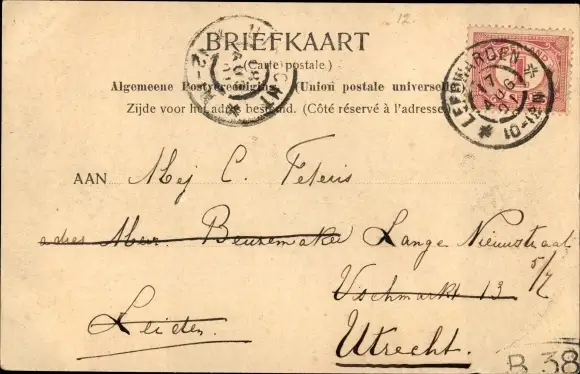 12.
BRIEFKAART
(Carte postale.)
Algemeene Postvereeniging (Union postale universelle)
Zijde voor het adres bestemd. (Côté réservé à l'adresse)
LEEUWARDEN
17 AUG 01
10-11
AAN Mej C. Feteris
adres Mevr Beuzemaker Lange Nieuwstraat
5/7
Vischmarkt 13
Leiden.
Utrecht.
B 38